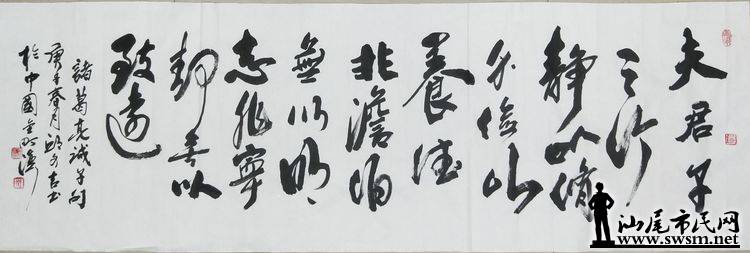 夫君子
之行
静以修
身儉以
養德
非澹泊
無以明
志非寧
静無以
致遠
諸葛亮誡子句
春月
於中國
汕尾市民网
www.swsm.net